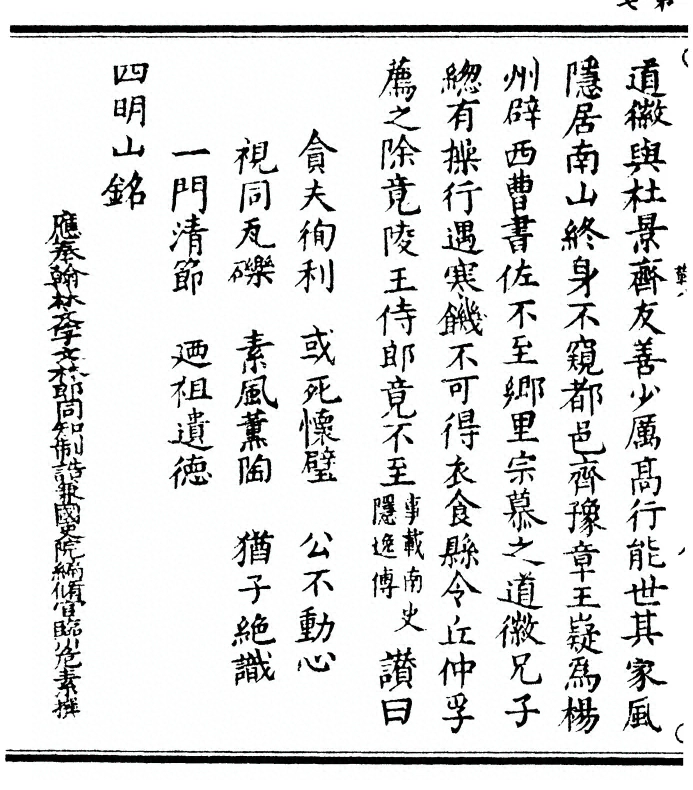 道徽與杜景齊友善少厲高行能世其家風
隱居南山終身不窺都邑齊豫章王嶷爲楊
州辟西曹書佐不至鄉里宗慕之道徽兄子
緫有操行遇寒饑不可得衣食縣令丘仲孚
薦之除竟陵王侍郎竟不至事載南史隱逸傳讃曰
貪夫徇利 或死懷璧 公不動心
視同瓦礫 素風薰陶 猶子絶識
一門清節 廼祖遺德
四明山銘
應奉翰林文字文林郎同知制誥兼國史院編脩官臨川危素撰